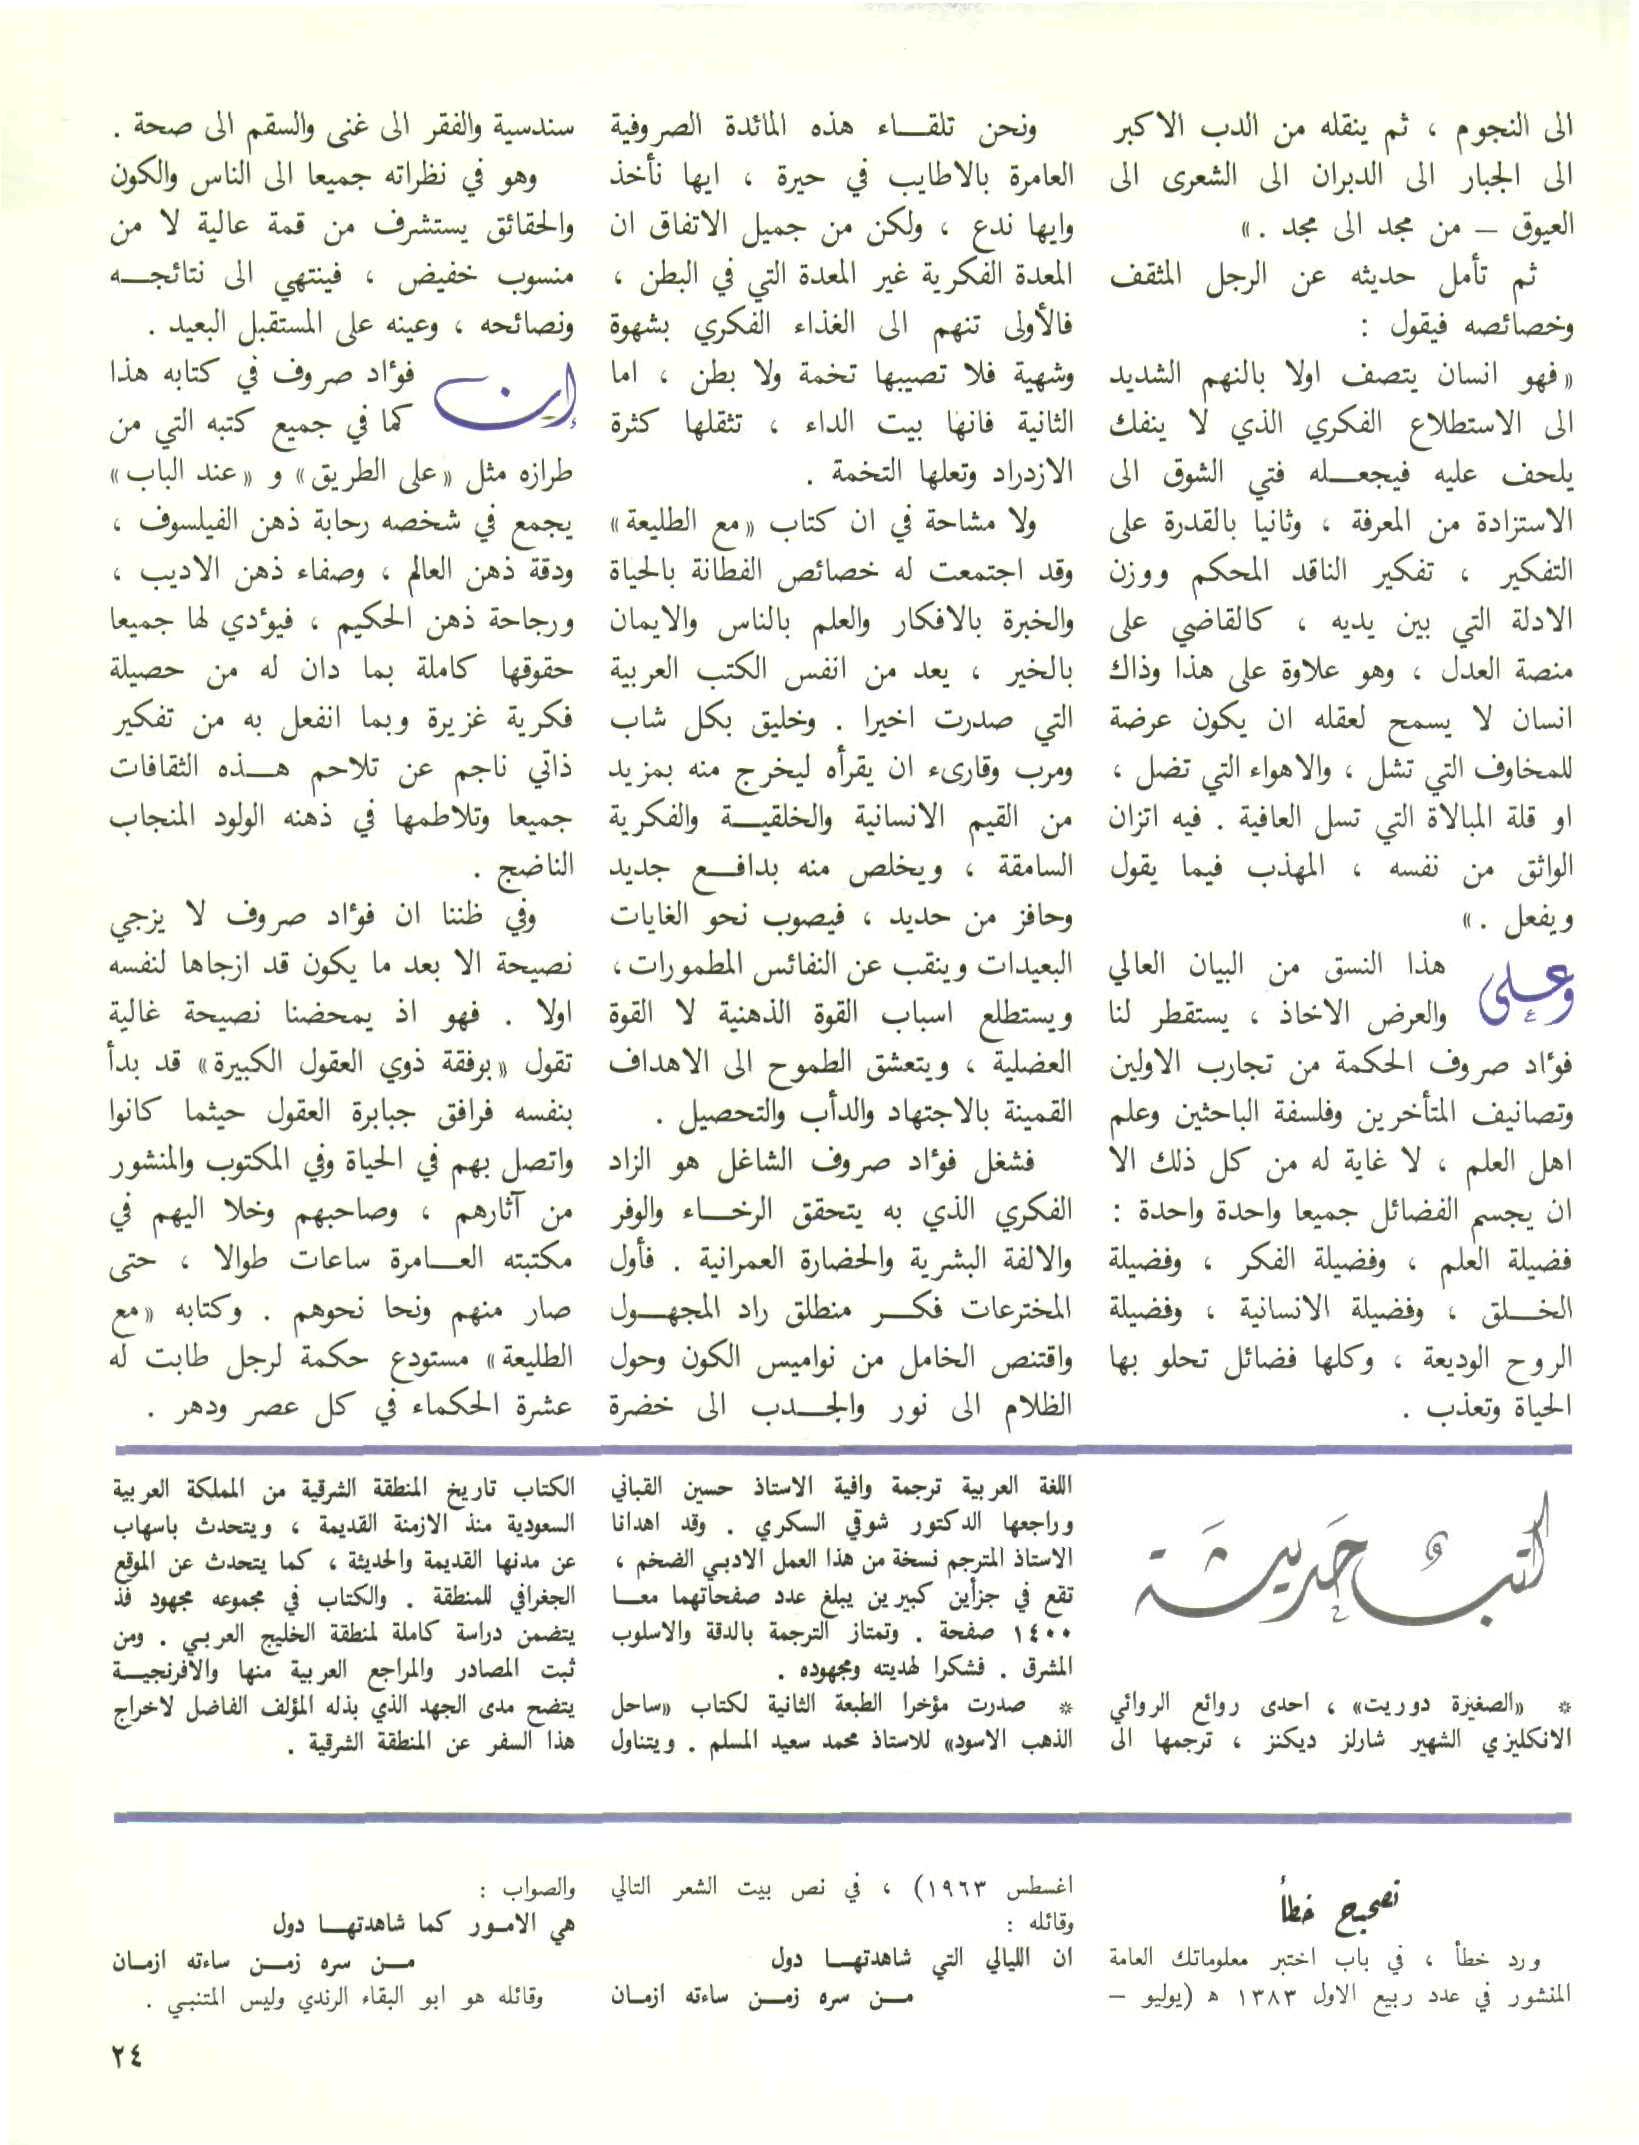 الى النجوم ، ثم ينقله من الدب الاكبر
الى الجبار الى الدبران الى الشعرى الى
العيوق — من مجد الى مجد . »
ثم تأمل حديثه عن الرجل المثقف
وخصائصه فيقول :
« فهو انسان يتصف اولا بالنهم الشديد
الى الاستطلاع الفكري الذي لا ينفك
يلحف عليه فيجعله فتي الشوق الى
الاستزادة من المعرفة ، وثانيا بالقدرة على
التفكير ، تفكير الناقد المحكم ووزن
الادلة التي بين يديه ، كالقاضي على
منصة العدل ، وهو علاوة على هذا وذاك
انسان لا يسمح لعقله ان يكون عرضة
للمخاوف التي تشل ، والاهواء التي تضل ،
او قلة المبالاة التي تسل العافية . فيه اتزان
الواثق من نفسه ، المهذب فيما يقول
ويفعل . »
وعلى هذا النسق من البيان العالي
والعرض الاخاذ ، يستقطر لنا
فؤاد صروف الحكمة من تجارب الاولين
وتصانيف المتأخرين وفلسفة الباحثين وعلم
اهل العلم ، لا غاية له من كل ذلك الا
ان يجسم الفضائل جميعا واحدة واحدة :
فضيلة العلم ، وفضيلة الفكر ، وفضيلة
الخلق ، وفضيلة الانسانية ، وفضيلة
الروح الوديعة ، وكلها فضائل تحلو بها
الحياة وتعذب .
ونحن تلقاء هذه المائدة الصروفية
العامرة بالاطايب في حيرة ، ايها نأخذ
وايها ندع ، ولكن من جميل الاتفاق ان
المعدة الفكرية غير المعدة التي في البطن ،
فالأولى تنهم الى الغذاء الفكري بشهوة
وشهية فلا تصيبها تخمة ولا بطن ، اما
الثانية فانها بيت الداء ، تثقلها كثرة
الازدراد وتعلها التخمة .
ولا مشاحة في ان كتاب « مع الطليعة »
وقد اجتمعت له خصائص الفطانة بالحياة
والخبرة بالافكار والعلم بالناس والايمان
بالخير ، يعد من انفس الكتب العربية
التي صدرت اخيرا . وخليق بكل شاب
ومرب وقارىء ان يقرأه ليخرج منه بمزيد
من القيم الانسانية والخلقية والفكرية
السامقة ، ويخلص منه بدافع جديد
وحافز من حديد ، فيصوب نحو الغايات
البعيدات وينقب عن النفائس المطمورات،
ويستطلع اسباب القوة الذهنية لا القوة
العضلية ، ويتعشق الطموح الى الاهداف
القمينة بالاجتهاد والدأب والتحصيل .
فشغل فؤاد صروف الشاغل هو الزاد
الفكري الذي به يتحقق الرخاء والوفر
والالفة البشرية والحضارة العمرانية . فأول
المخترعات فكر منطلق راد المجهول
واقتنص الخامل من نواميس الكون وحول
الظلام الى نور والجدب الى خضرة
سندسية والفقر الى غنى والسقم الى صحة .
وهو في نظراته جميعا الى الناس والكون
والحقائق يستشرف من قمة عالية لا من
منسوب خفيض ، فينتهي الى نتائجه
ونصائحه ، وعينه على المستقبل البعيد .
إن فؤاد صروف في كتابه هذا
كما في جميع كتبه التي من
طرازه مثل « على الطريق » و « عند الباب »
يجمع في شخصه رحابة ذهن الفيلسوف ،
ودقة ذهن العالم ، وصفاء ذهن الاديب ،
ورجاحة ذهن الحكيم ، فيؤدي لها جميعا
حقوقها كاملة بما دان له من حصيلة
فكرية غزيرة وبما انفعل به من تفكير
ذاتي ناجم عن تلاحم هذه الثقافات
جميعا وتلاطمها في ذهنه الولود المنجاب
الناضج .
وفي ظننا ان فؤاد صروف لا يزجي
نصيحة الا بعد ما يكون قد ازجاها لنفسه
اولا . فهو اذ يمحضنا نصيحة غالية
تقول « برفقة ذوي العقول الكبيرة » قد بدأ
بنفسه فرافق جبابرة العقول حيثما كانوا
واتصل بهم في الحياة وفي المكتوب والمنشور
من آثارهم ، وصاحبهم وخلا اليهم في
مكتبته العامرة ساعات طوالا ، حتى
صار منهم ونحا نحوهم . وكتابه « مع
الطليعة » مستودع حكمة لرجل طابت له
عشرة الحكماء في كل عصر ودهر .
كتب حديثة
* «الصغيرة دوريت» ، احدى روائع الروائي
الانكليزي الشهير شارلز ديكنز ، ترجمها الى
اللغة العربية ترجمة وافية الاستاذ حسين القباني
وراجعها الدكتور شوقي السكري . وقد اهدانا
الاستاذ المترجم نسخة من هذا العمل الادبي الضخم ،
تقع في جزأين كبيرين يبلغ عدد صفحاتهما معا
١٤٠٠ صفحة . وتمتاز الترجمة بالدقة والاسلوب
المشرق . فشكرا لهديته ومجهوده .
* صدرت مؤخرا الطبعة الثانية لكتاب «ساحل
الذهب الاسود» للاستاذ محمد سعيد المسلم . ويتناول
الكتاب تاريخ المنطقة الشرقية من المملكة العربية
السعودية منذ الازمنة القديمة ، ويتحدث باسهاب
عن مدنها القديمة والحديثة ، كما يتحدث عن الموقع
الجغرافي للمنطقة . والكتاب في مجموعه مجهود فذ
يتضمن دراسة كاملة لمنطقة الخليج العربي . ومن
ثبت المصادر والمراجع العربية منها والافرنجية
يتضح مدى الجهد الذي بذله المؤلف الفاضل لاخراج
هذا السفر عن المنطقة الشرقية .
تصحيح خطأ
ورد خطأ ، في باب اختبر معلوماتك العامة
المنشور في عدد ربيع الاول ١٣٨٣ ه (يوليو –
اغسطس ١٩٦٣) ، في نص بيت الشعر التالي
وقائله :
ان الليالي التي شاهدتها دول
من سره زمن ساءته ازمان
والصواب :
هي الامور كما شاهدتها دول
من سره زمن ساءته ازمان
وقائله هو ابو البقاء الرندي وليس المتنبي .
٢٤